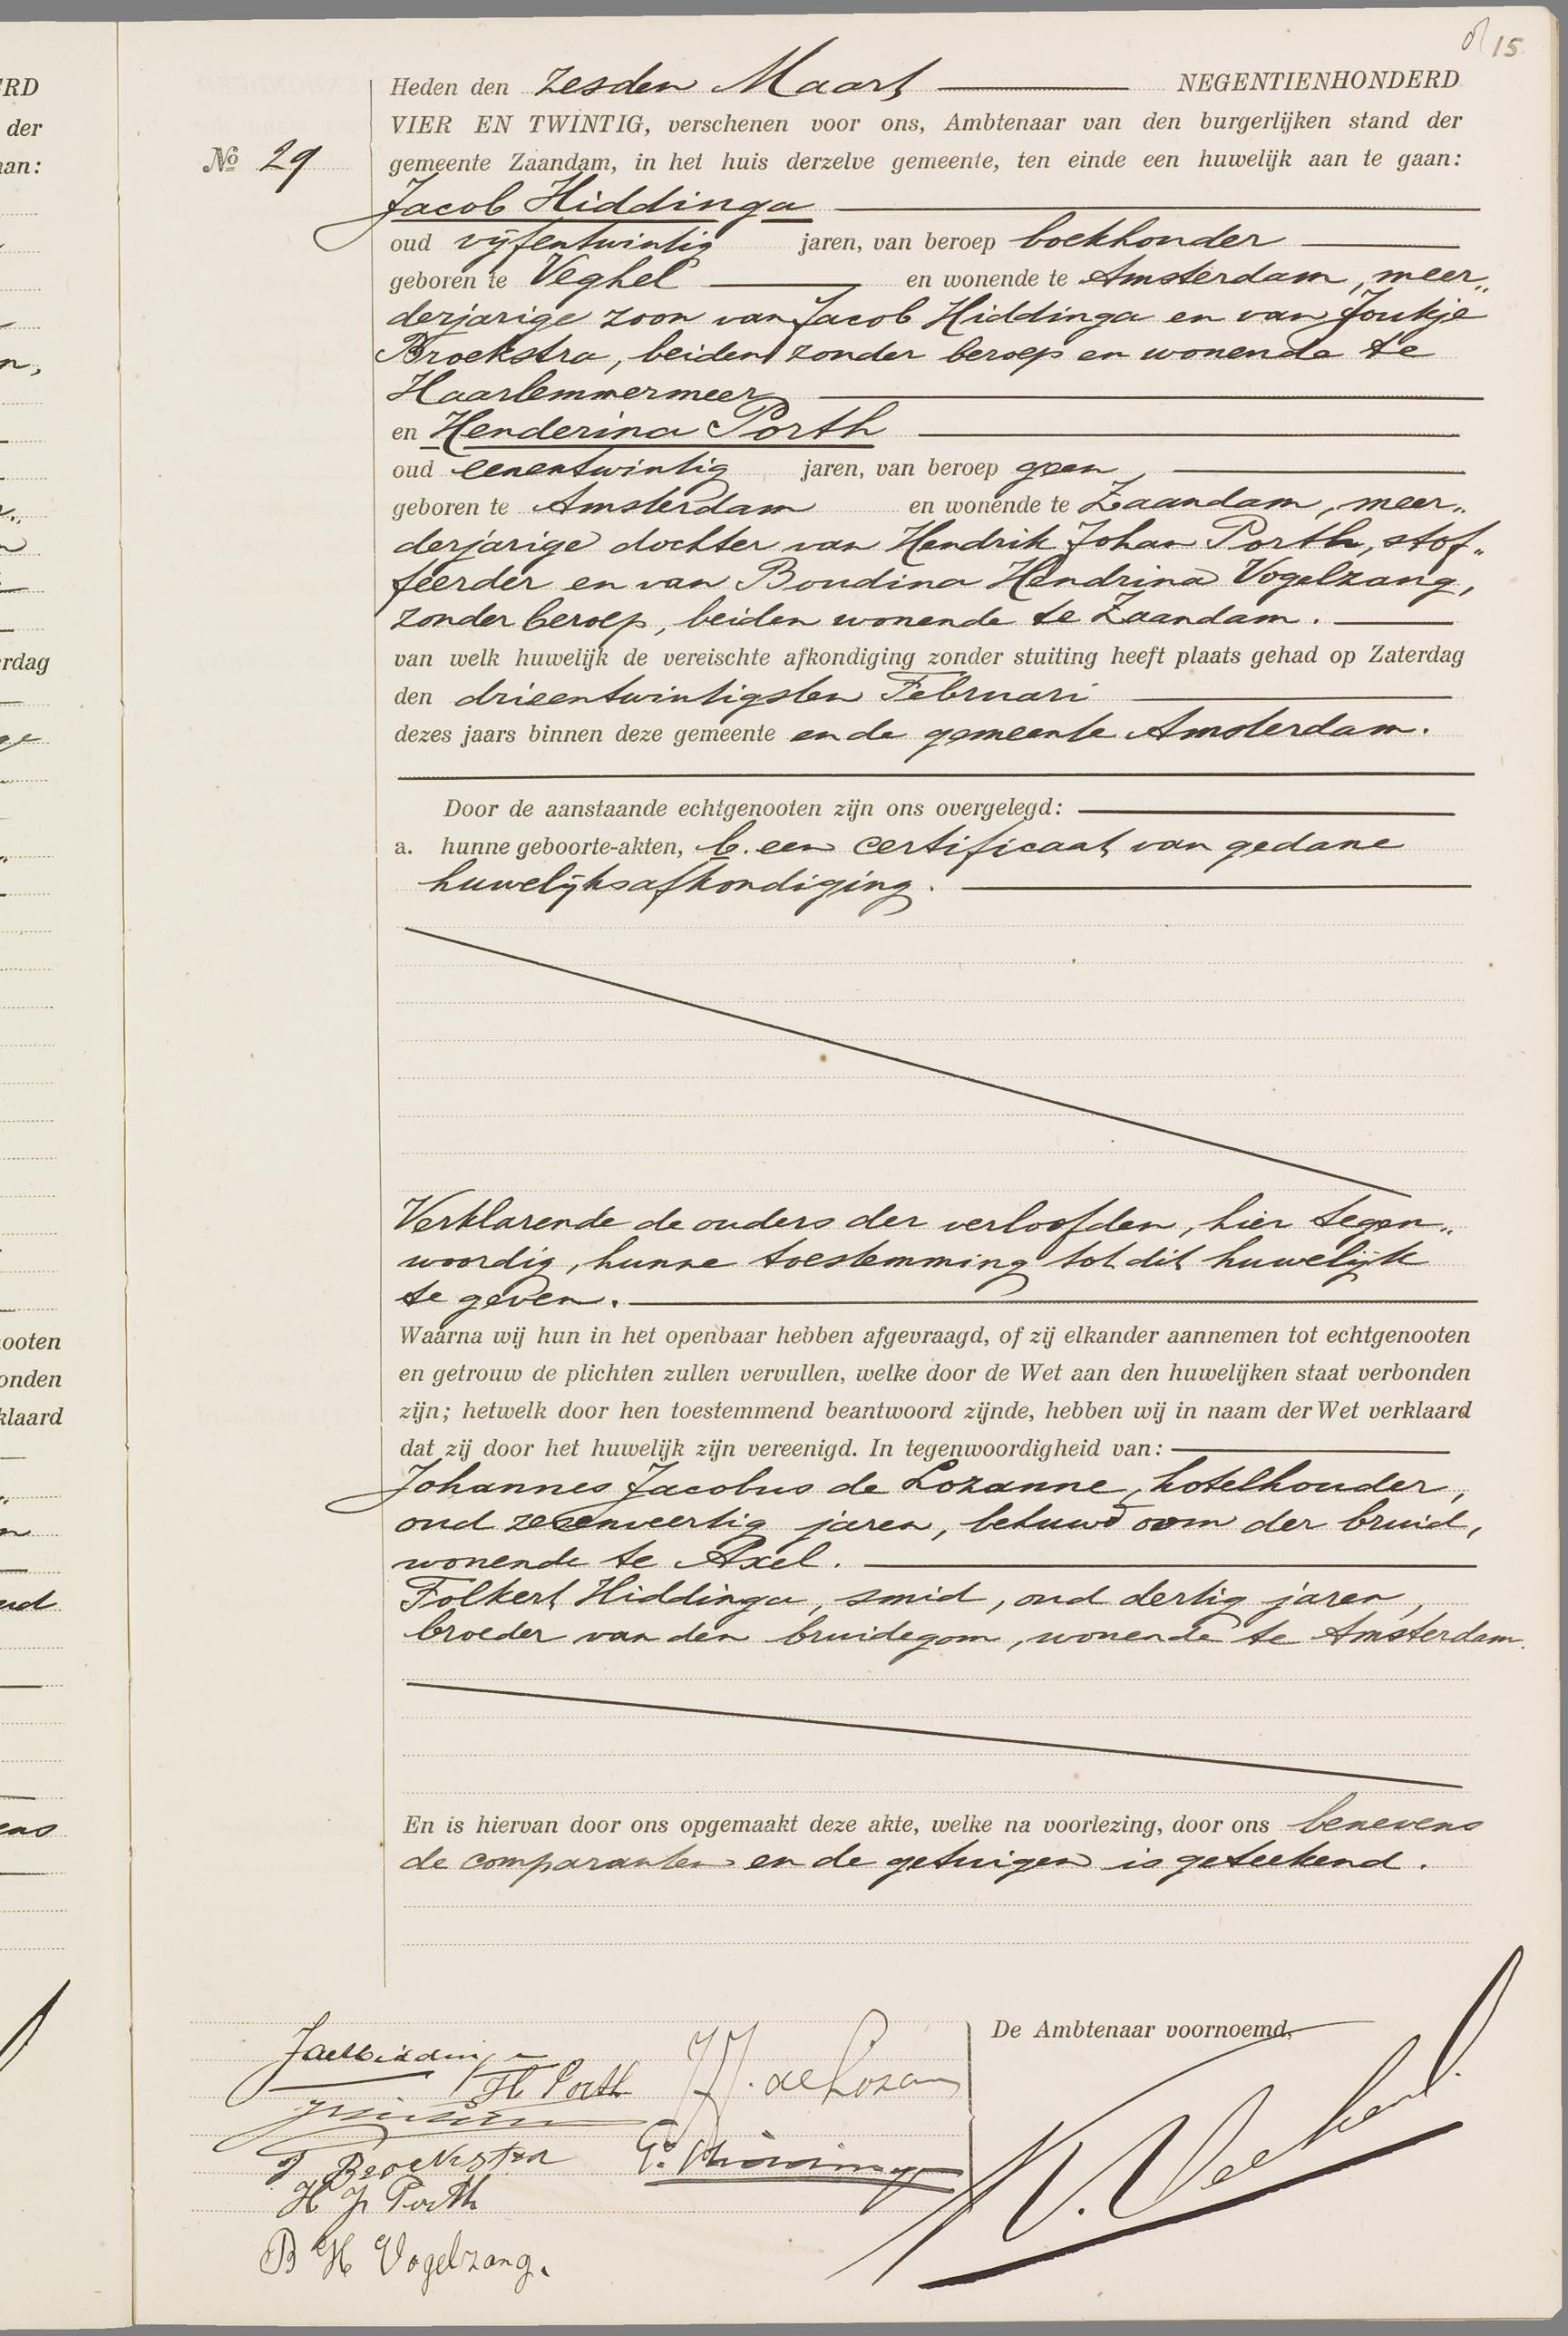 15
RD
der
aan:
rdag
nooten
onden
klaard
Heden den zesden Maart NEGENTIENHONDERD
VIER EN TWINTIG, verschenen voor ons, Ambtenaar van den burgerlijken stand der
No 29
gemeente Zaandam, in het huis derzelve gemeente, ten einde een huwelijk aan te gaan:
Jacob Hiddinga
oud vijfentwintig jaren, van beroep boekhouder
geboren te Veghel en wonende te Amsterdam, meer„
derjarige zoon van Jacob Hiddinga en van Joukje
Broekstra, beiden zonder beroep en wonende te
Haarlemmermeer
en Henderina Porth
oud eenentwintig jaren, van beroep geen,
geboren te Amsterdam en wonende te Zaandam, meer„
derjarige dochter van Hendrik Johan Porth, stof„
feerder en van Boudina Hendrina Vogelzang,
zonder beroep, beiden wonende te Zaandam.
van welk huwelijk de vereischte afkondiging zonder stuiting heeft plaats gehad op Zaterdag
den drieentwintigsten Februari
dezes jaars binnen deze gemeente en de gemeente Amsterdam.
Door de aanstaande echtgenooten zijn ons overgelegd:
a. hunne geboorte-akten, b. een certificaat van gedane
huwelijksafkondiging.
Verklarende de ouders der verloofden, hier tegen„
woordig, hunne toestemming tot dit huwelijk
te geven.
Waarna wij hun in het openbaar hebben afgevraagd, of zij elkander aannemen tot echtgenooten
en getrouw de plichten zullen vervullen, welke door de Wet aan den huwelijken staat verbonden
zijn; hetwelk door hen toestemmend beantwoord zijnde, hebben wij in naam der Wet verklaard
dat zij door het huwelijk zijn vereenigd. In tegenwoordigheid van:
Johannes Jacobus de Lozanne, hotelhouder,
oud zesenveertig jaren, behuwd oom der bruid,
wonende te Axel.
Folkert Hiddinga, smid, oud dertig jaren,
broeder van den bruidegom, wonende te Amsterdam.
En is hiervan door ons opgemaakt deze akte, welke na voorlezing, door ons benevens
de comparanten en de getuigen is geteekend.
De Ambtenaar voornoemd,
Jac Hiddinga
H Porth
J J. de Lozan
J Broekstra
F. Hiddinga
H J Porth
B H Vogelzang.